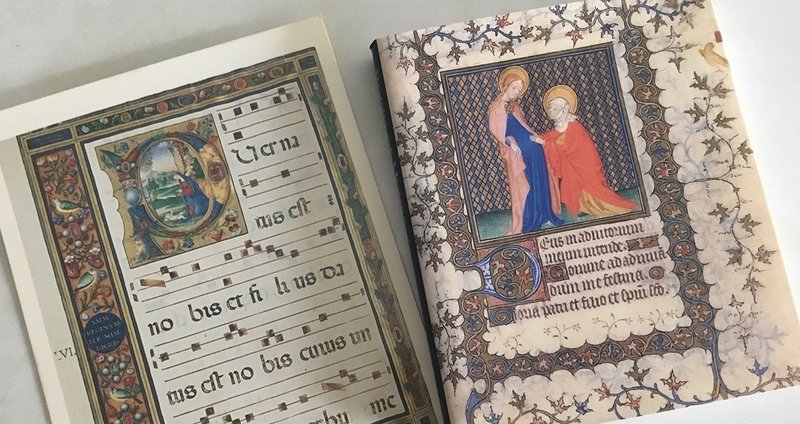 Puer na
tus est
no bis et fi li us da
tus est no bis cuius im
LVI
REGINA MA
TER MISE
Deus in adiutorium
meum intende.
Domine ad adiuuā
dum me festina.
Gloria patri et filio et spūi sco.